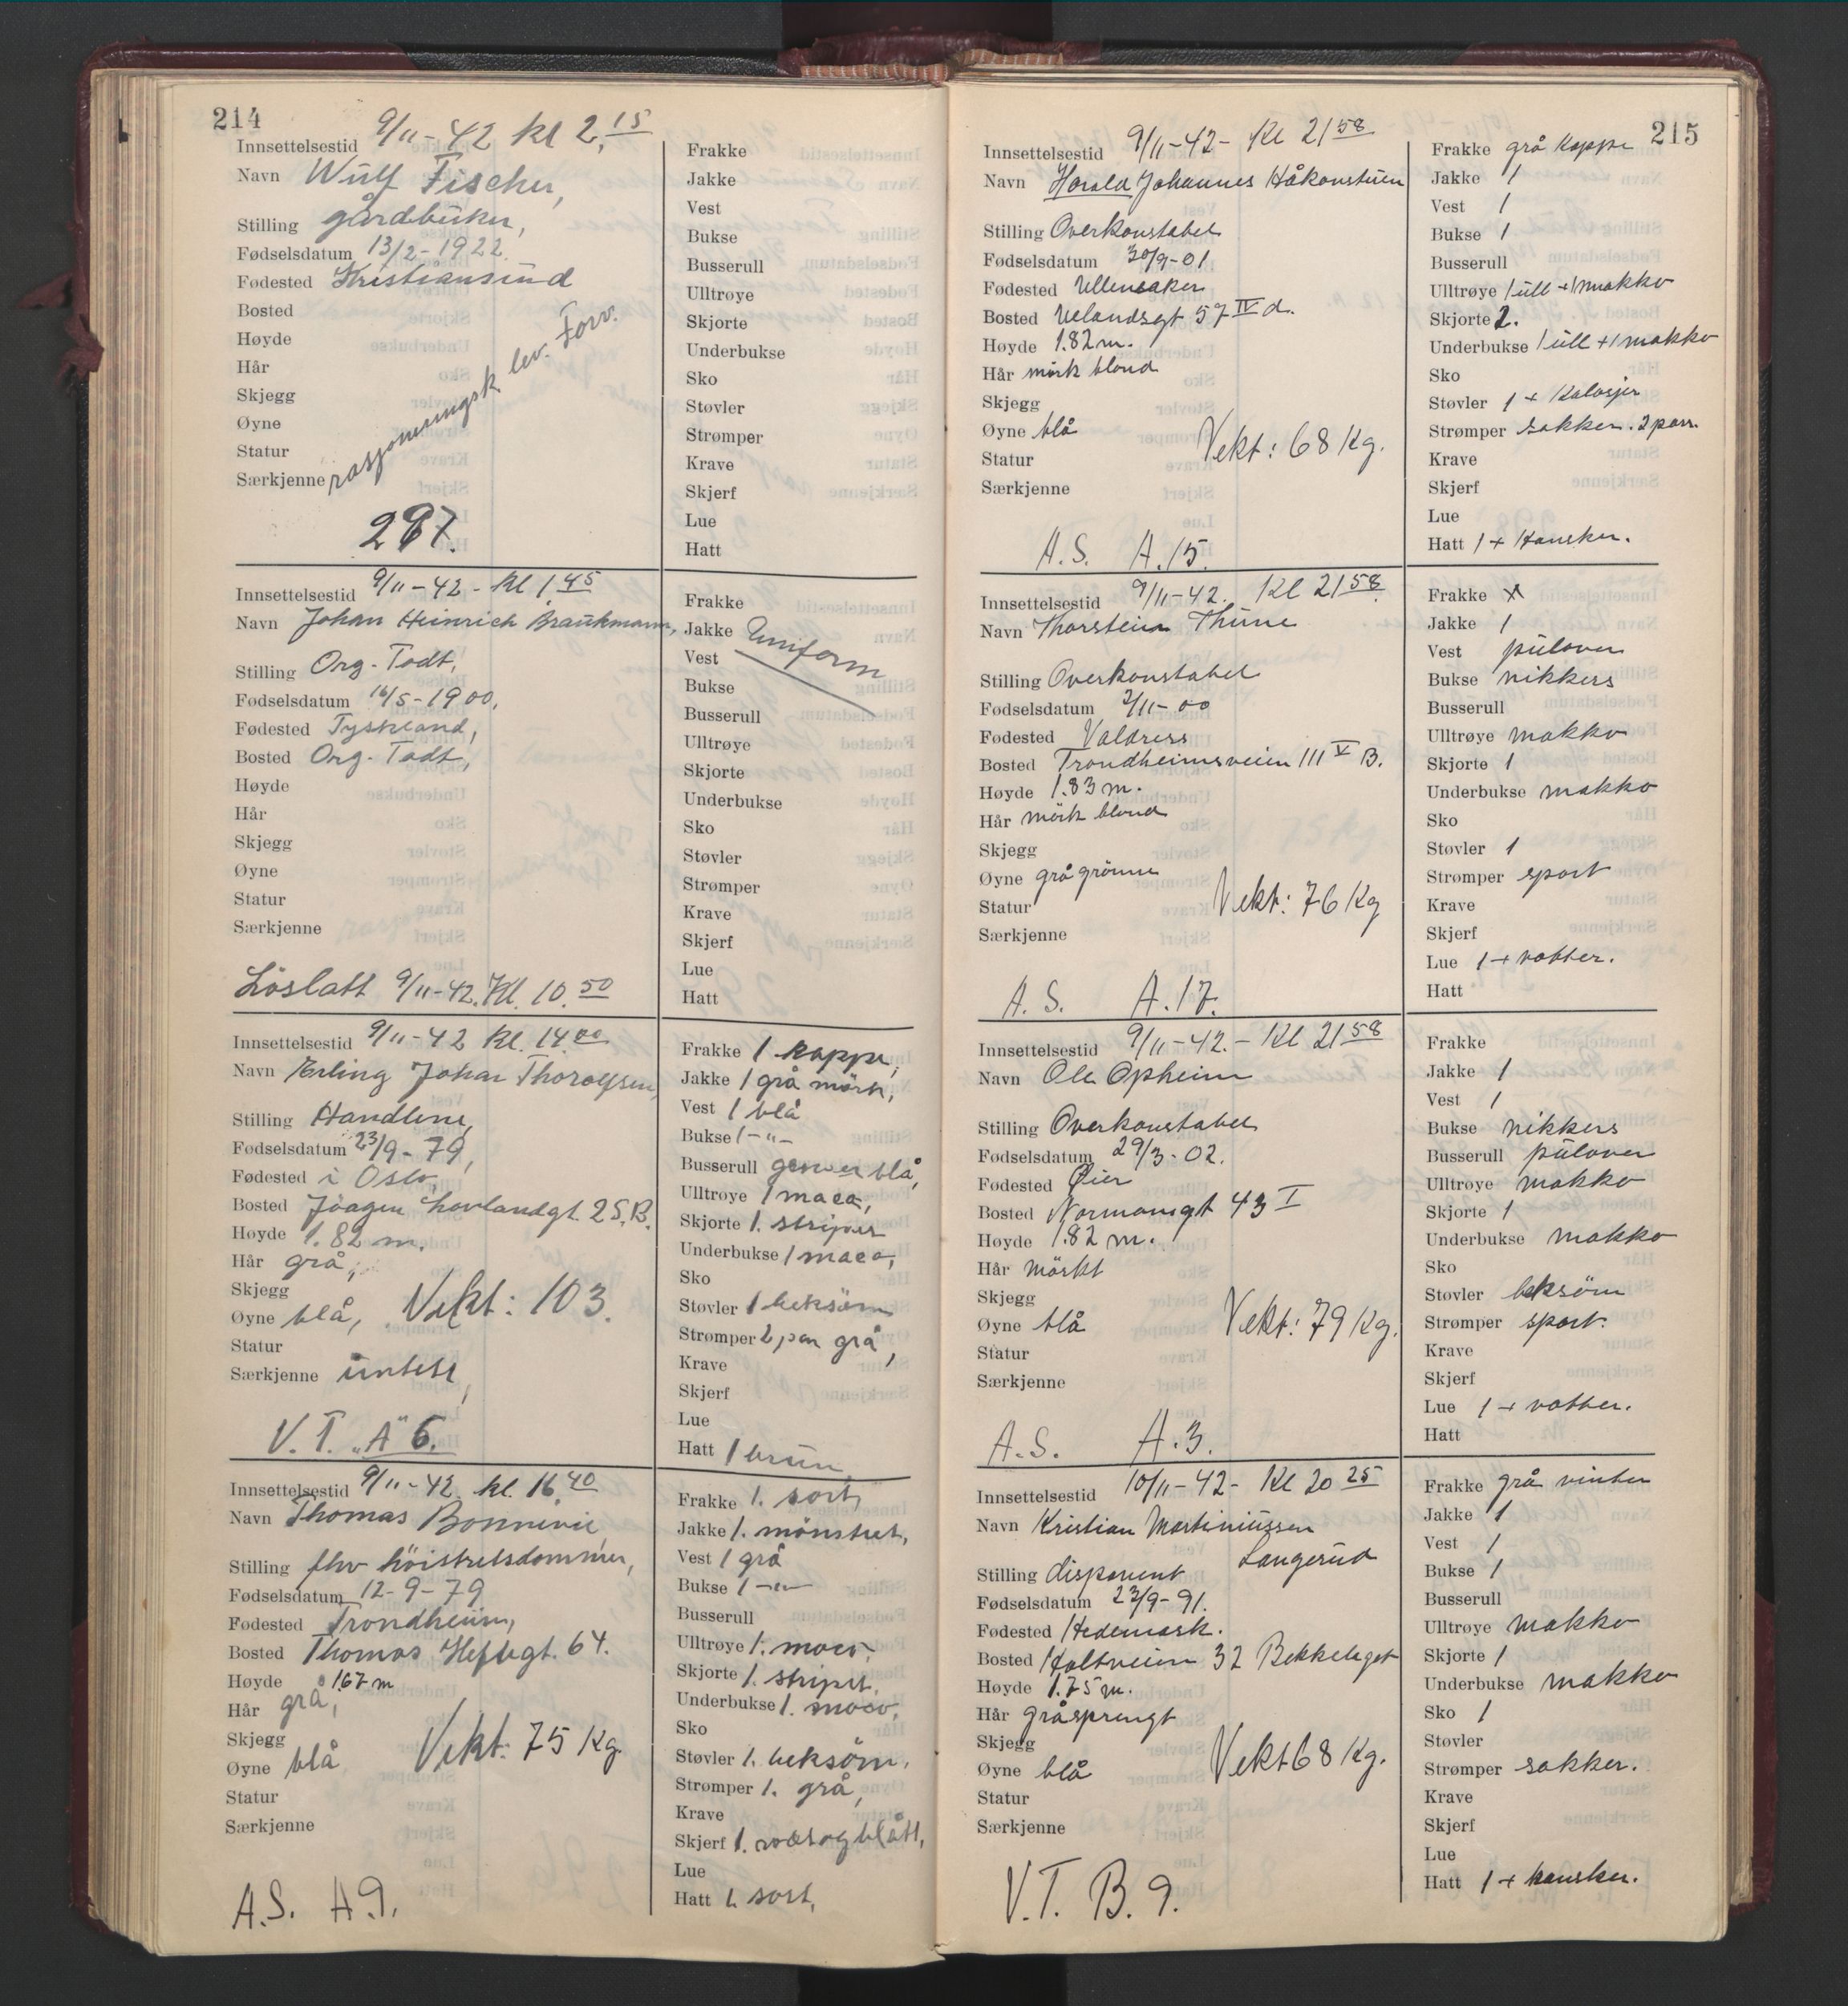 214
Innsettelsestid 9/11-42 kl 2,15
Navn Wulf Fischer,
Stilling gårdbruker,
Fødselsdatum 13/2-1922.
Fødested Kristiansund
Bosted
Høyde
Hår
Skjegg
Øyne
Statur
Særkjenne
rasjoneringsk lev. Forv.
297.
Frakke
Jakke
Vest
Bukse
Busserull
Ulltrøye
Skjorte
Underbukse
Sko
Støvler
Strømper
Krave
Skjerf
Lue
Hatt
Innsettelsestid 9/11-42 - kl 1,45
Navn Johan Heinrich Braukmann,
Stilling Org. Todt,
Fødselsdatum 16/5-1900,
Fødested Tyskland,
Bosted Org. Todt,
Høyde
Hår
Skjegg
Øyne
Statur
Særkjenne
Löslatt 9/11-42. Kl. 10.50
Frakke
Jakke Uniform
Vest
Bukse
Busserull
Ulltrøye
Skjorte
Underbukse
Sko
Støvler
Strømper
Krave
Skjerf
Lue
Hatt
Innsettelsestid 9/11-42 kl. 14.00
Navn Erling Johan Thorolfsen,
Stilling Handlene,
Fødselsdatum 23/9-79,
Fødested i Oslo,
Bosted Jørgen Lovlandgt. 2 S.B.
Høyde 1.82 m.
Hår grå,
Skjegg
Øyne blå, Vekt: 103.
Statur
Særkjenne intett,
V.T. "A" 6.
Frakke 1 kappe,
Jakke 1 grå mörk,
Vest 1 blå
Bukse 1 -"-
Busserull genser blå,
Ulltrøye 1 maco,
Skjorte 1. stripet
Underbukse 1 maco,
Sko
Støvler 1 beksöm
Strømper 2 par grå,
Krave
Skjerf
Lue
Hatt 1 brun
Innsettelsestid 9/11-42. kl. 16.40
Navn Thomas Bonnevie
Stilling fhv höistretsdommer,
Fødselsdatum 12-9-79
Fødested Trondheim,
Bosted Thomas Heftegt. 64.
Høyde 1.67 m
Hår grå,
Skjegg
Øyne blå Vekt: 75 Kg.
Statur
Særkjenne
A.S. A.9.
Frakke 1. sort,
Jakke 1. mönstret,
Vest 1 grå
Bukse 1 -"-
Busserull
Ulltrøye 1. maco.
Skjorte 1. stripet,
Underbukse 1. maco,
Sko
Støvler 1. beksöm.
Strømper 1. grå,
Krave
Skjerf 1. rødt og blått,
Lue
Hatt 1. sort,
215
Innsettelsestid 9/11-42- Kl 21 58
Navn Harald Johannes Håkonstuen
Stilling Overkonstabel
Fødselsdatum 30/9-01
Fødested Ullensaker
Bosted Uelandsgt 57 IV d.
Høyde 1.82 m.
Hår mörk blond
Skjegg
Øyne blå
Vekt: 68 Kg.
Statur
Særkjenne
A.S. A.15.
Frakke grå kappe
Jakke 1
Vest 1
Bukse 1
Busserull
Ulltrøye 1 ull + 1 makko
Skjorte 2.
Underbukse 1 ull + 1 makko
Sko
Støvler 1 + Kalosjer
Strømper sokker. 2 parr.
Krave
Skjerf
Lue
Hatt 1 + Hansker.
Innsettelsestid 9/11-42. Kl 21 58.
Navn Thorstein Thune
Stilling Overkonstabel
Fødselsdatum 2/11-00
Fødested Valdress
Bosted Trondheimsveien 111 V B.
Høyde 1.83 m.
Hår mörk blond
Skjegg
Øyne grå grönne
Statur
Vekt: 76 Kg
Særkjenne
A.S. A.17.
Frakke X
Jakke 1
Vest pulover
Bukse nikkers
Busserull
Ulltrøye makko
Skjorte 1
Underbukse makko
Sko
Støvler 1
Strømper sport
Krave
Skjerf
Lue 1 + votter.
Hatt
Innsettelsestid 9/11-42. - Kl 21 58
Navn Ole Opheim
Stilling Overkonstabel
Fødselsdatum 29/3-02.
Fødested Øier
Bosted Normansgt 43 I
Høyde 1.82 m.
Hår mörkt
Skjegg
Øyne blå
Vekt: 79 Kg.
Statur
Særkjenne
A.S. A.3.
Frakke
Jakke 1
Vest 1
Bukse nikkers
Busserull pulover
Ulltrøye makko
Skjorte 1
Underbukse makko
Sko
Støvler beksöm
Strømper sport.
Krave
Skjerf
Lue 1 + votter.
Hatt
Innsettelsestid 10/11-42- Kl 20 25
Navn Kristian Martiniussen
Langerud
Stilling disponent
Fødselsdatum 23/9-91.
Fødested Hedemark.
Bosted Holtveien 32 Bekkelaget
Høyde 1.75 m.
Hår gråsprengt
Skjegg
Øyne blå
Vekt 68 Kg.
Statur
Særkjenne
V.T. B.9.
Frakke grå vinter
Jakke 1
Vest 1
Bukse 1
Busserull
Ulltrøye makko
Skjorte 1
Underbukse makko
Sko 1
Støvler
Strømper sokker.
Krave
Skjerf
Lue
Hatt 1 + hansker.